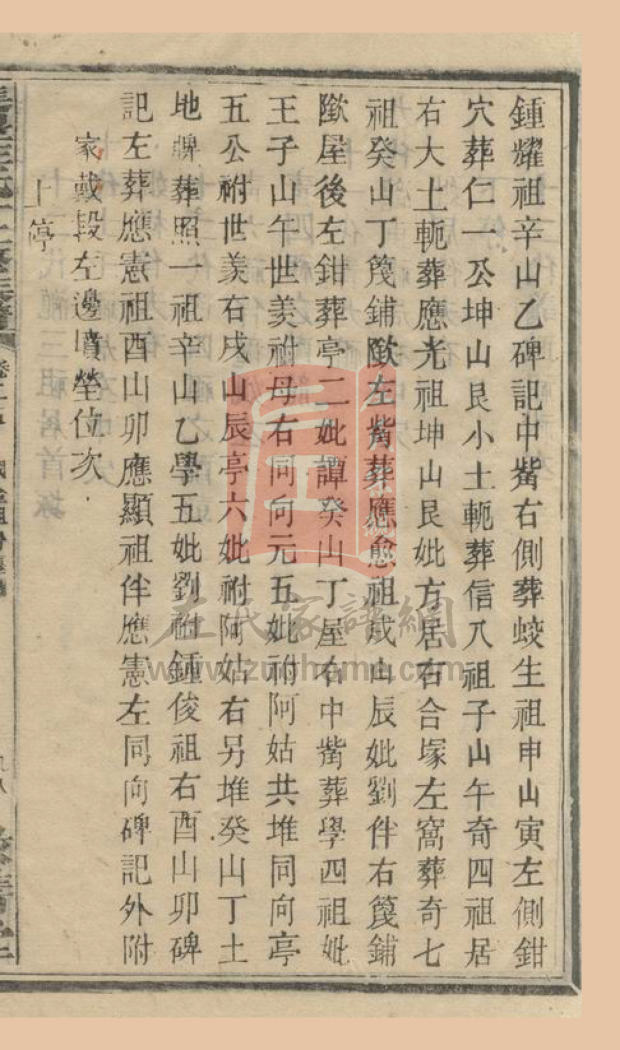 鍾耀祖辛山乙碑記中觜右側葬蛟生祖申山寅左側鉗
穴葬仁一公坤山艮小土軛葬信八祖子山午奇四祖居
右大土軛葬應光祖坤山艮妣方居右合塚左窩葬奇七
祖癸山丁籛鋪歟左觜葬應愈祖戌山辰妣劉伴右籛鋪
歟屋後左鉗葬亭二妣譚癸山丁屋右中觜葬學四祖妣
王子山午世羨祔母右同向元五妣祔阿姑共堆同向亭
五公祔世羨右戌山辰亭六妣祔阿姑右另堆癸山丁土
地牌葬照一祖辛山乙學五妣劉祔鍾俊祖右酉山卯碑
記左葬應憲祖酉山卯應顯祖伴應憲左同向碑記外附
家載段左邊墳塋位次
上停
左氏家譜網
www.zuihome.com